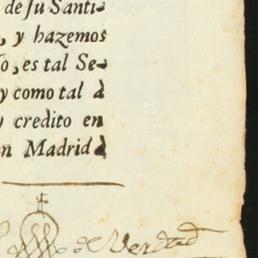 de ſu Santi-
, y hazemos
o, es tal Se-
y como tal à
y credito en
en Madrid à
de Verdad